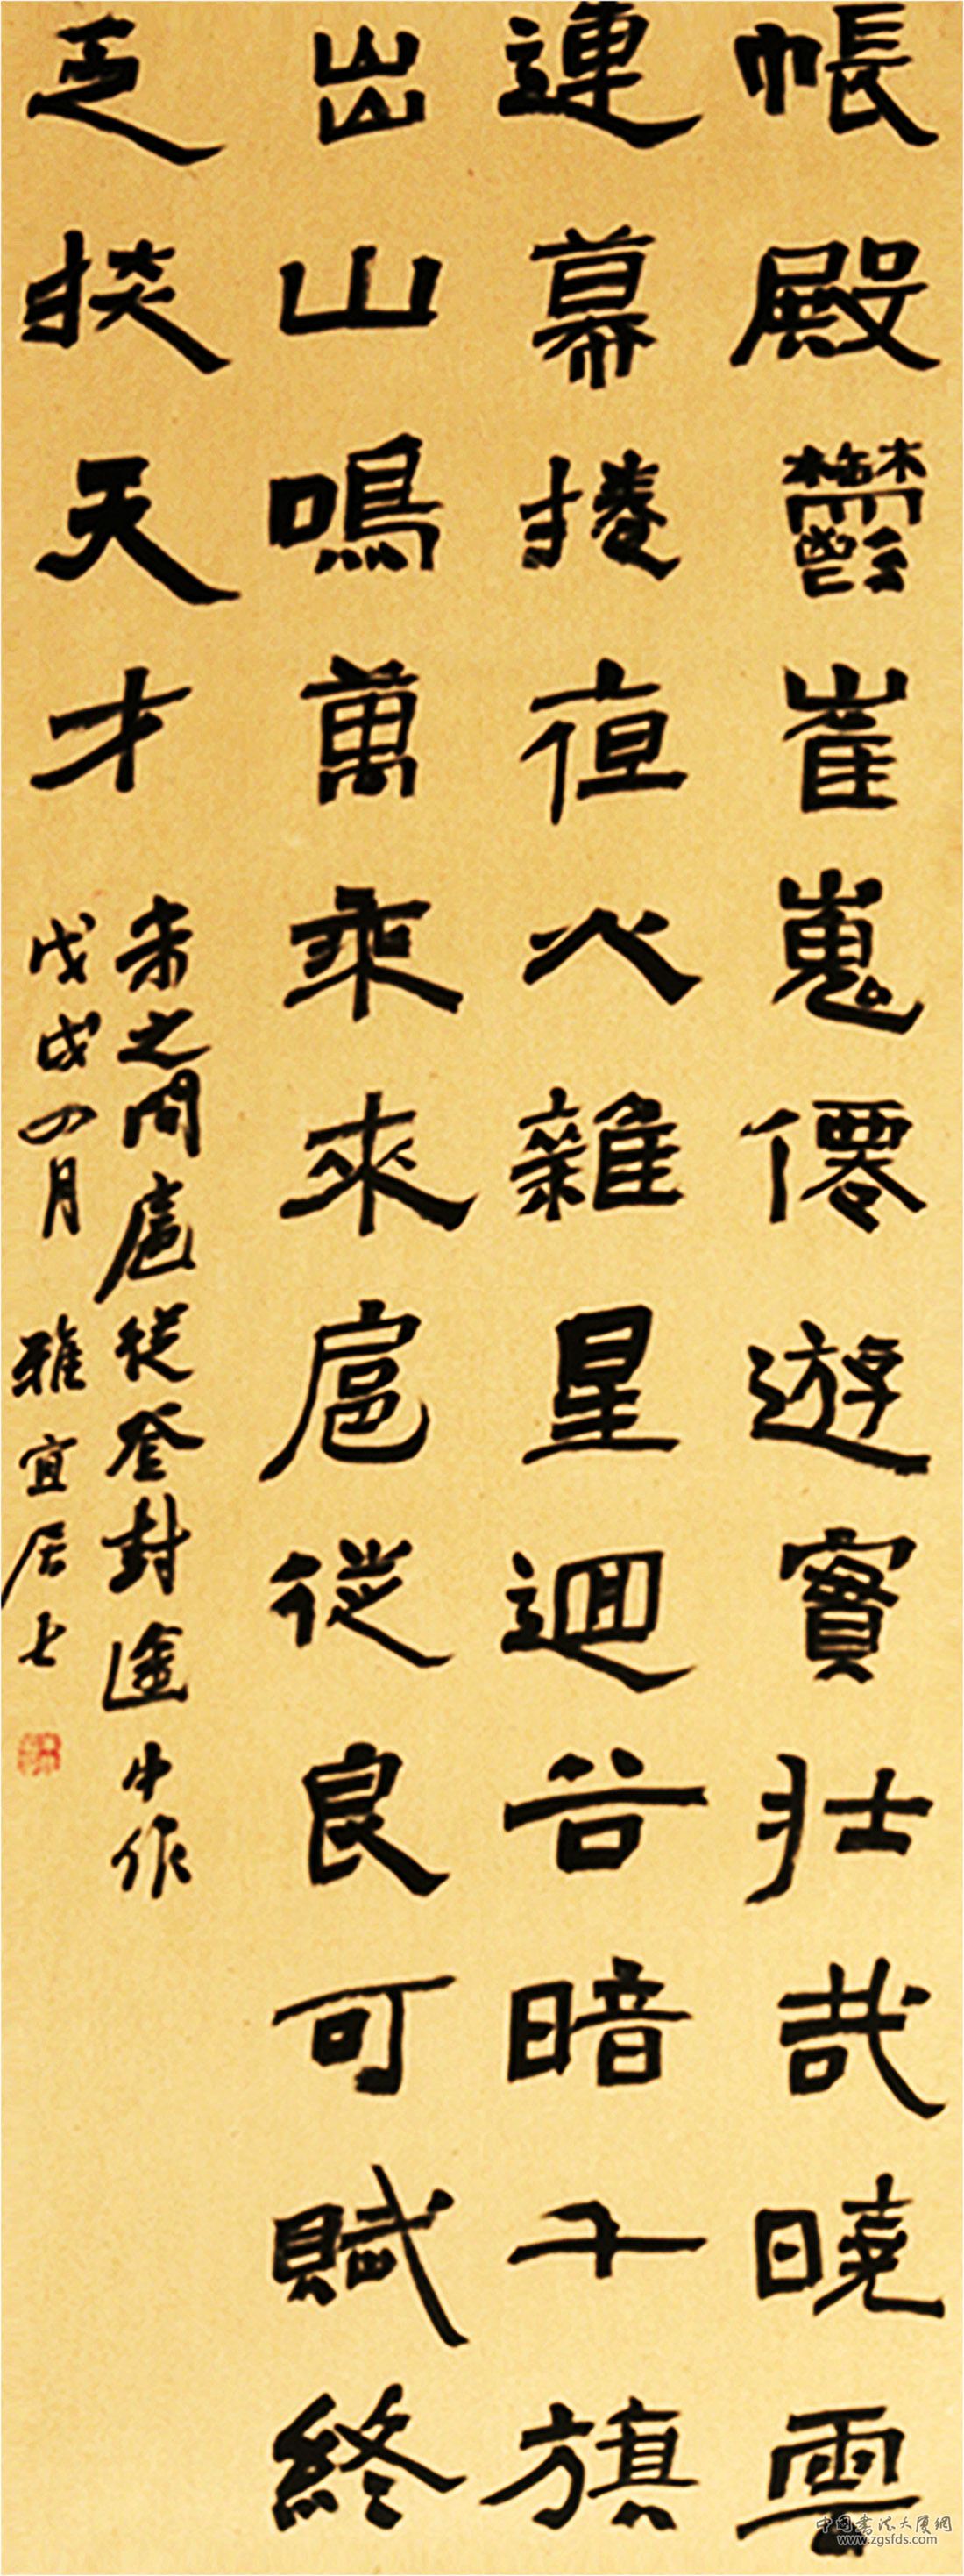 帳殿鬱崔嵬僊遊實壯哉曉雲
連幕捲夜火雜星迴谷暗千旗
出山鳴萬乘來扈從良可賦終
乏掞天才
宋之問扈從登封途中作
戊戌四月 雅宜居士
中国書法大厦網
www.zgsfds.com